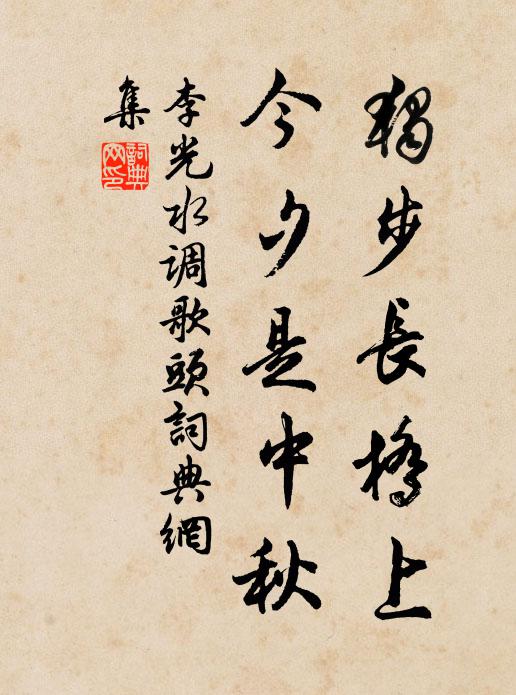 獨步長橋上
今夕是中秋
李光水调歌頭詞典網
集
詞典
网印